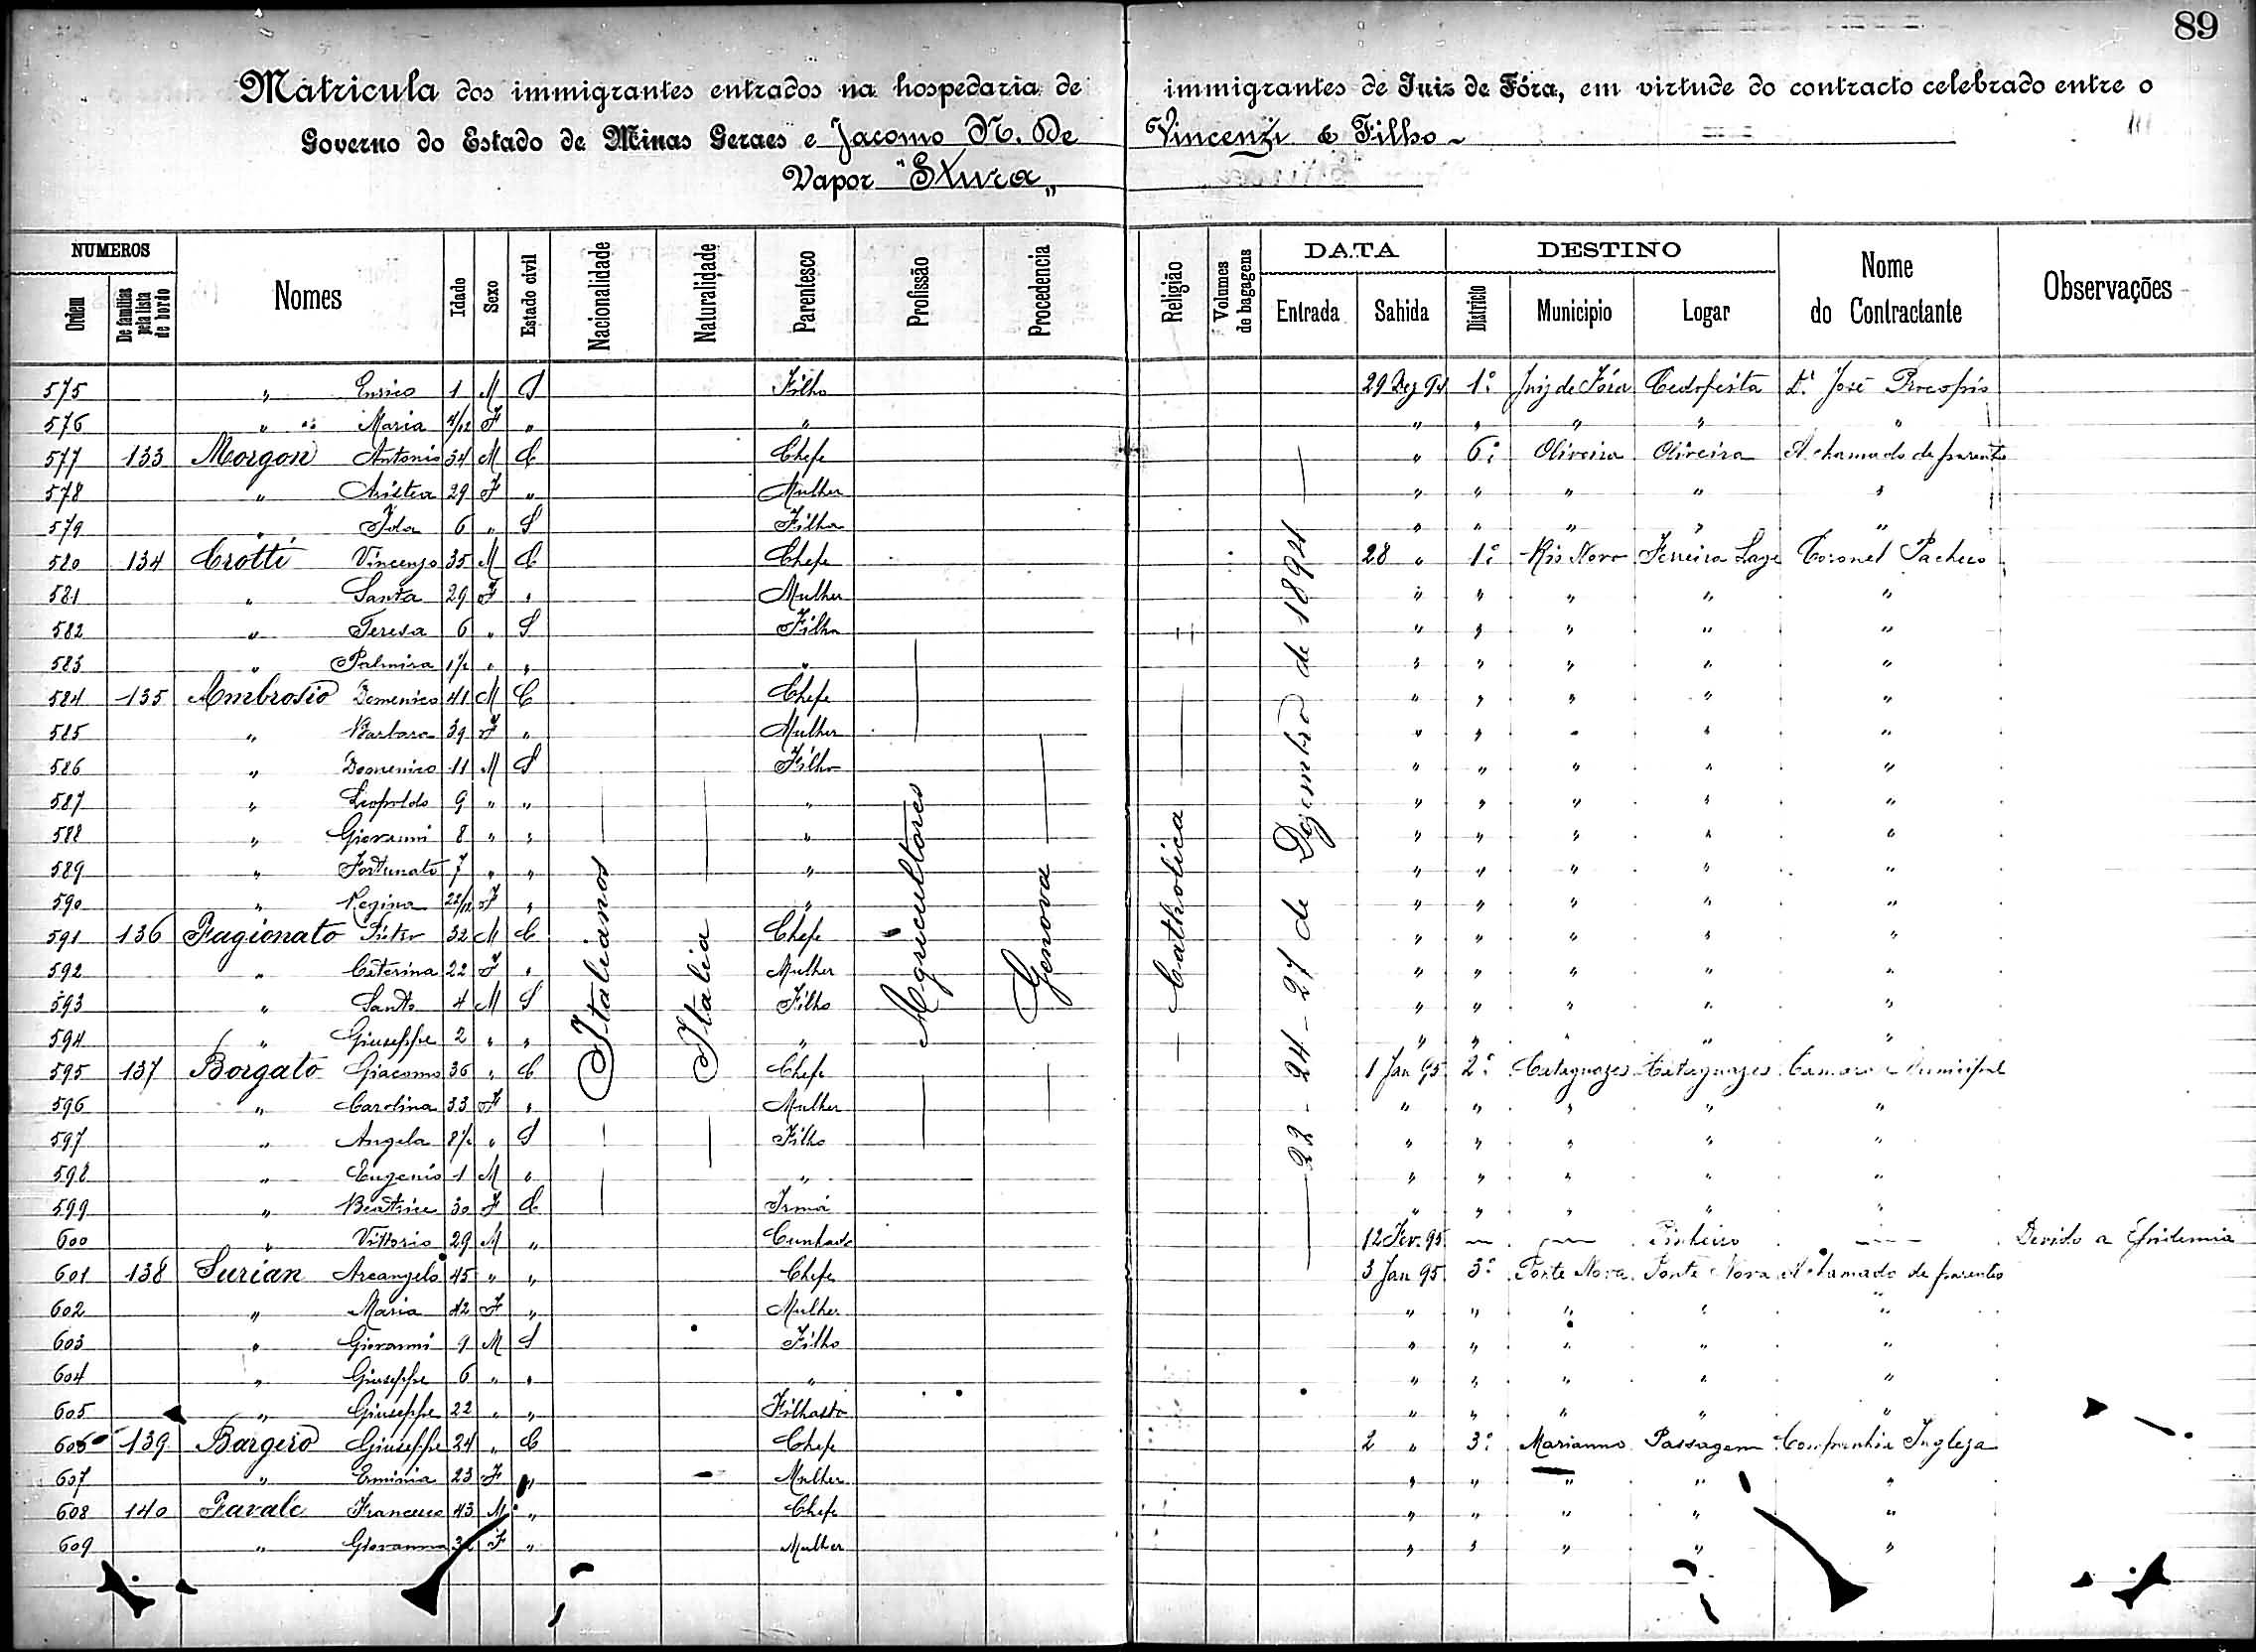 89
Matricula dos immigrantes entrados na hospedaria de immigrantes de Juiz de Fóra, em virtude do contracto celebrado entre o
Governo do Estado de Minas Geraes e Jacomo N. De Vincenzi & Filho
Vapor "Stura"
NUMEROS DATA DESTINO
Ordem De familias pela lista de bordo Nomes Idade Sexo Estado civil Nacionalidade Naturalidade Parentesco Profissão Procedencia Religião Volumes de bagagens Entrada Sahida Districto Municipio Logar Nome do Contractante Observações
Italianos Italia Agricultores Genova Catholica 22 - 24 - 27 de Dezembro de 1894
575 " Enrico 1 M S Filho 29 Dez 94 1º Juiz de Fóra Cedofeita Dr José Procopio
576 " " Maria F " " " " " " "
577 133 Morgon Antonio 34 M C Chefe " 6º Oliveira Oliveira A chamado de parente
578 " Aristea 29 F " Mulher " " " " "
579 " Ida 6 " S Filha " " " " "
580 134 Crotti Vincenzo 35 M C Chefe 28 " 1º Rio Novo Ferreira Lage Coronel Pacheco
581 " Santa 29 F " Mulher " " " " "
582 " Teresa 6 " S Filha " " " " "
583 " Palmira 1½ " " " " " " " "
584 135 Ambrosio Domenico 41 M C Chefe " " " " "
585 " Barbara 39 F " Mulher " " " " "
586 " Domenico 11 M S Filho " " " " "
587 " Leopoldo 9 " " " " " " " "
588 " Giovanni 8 " " " " " " " "
589 " Fortunato 7 " " " " " " " "
590 " Regina 22/12 F " " " " " " "
591 136 Fagionato Pieter 32 M C Chefe " " " " "
592 " Caterina 22 F " Mulher " " " " "
593 " Santo 4 M S Filho " " " " "
594 " Giuseppe 2 " " " " " " " "
595 137 Borgato Giacomo 36 " C Chefe 1 Jan 95 2º Cataguazes Cataguazes Camara Municipal
596 " Carolina 33 F " Mulher " " " " "
597 " Angela 8½ " S Filho " " " " "
598 " Eugenio 1 M " " " " " " "
599 " Beatrice 30 F C Irmã " " " " "
600 " Vittorio 29 M " Cunhado 12 Fev. 95 — — Pinheiro — Devido a Epidemia
601 138 Surian Arcangelo 45 " " Chefe 3 Jan 95 3º Ponte Nova Ponte Nova A chamado de parentes
602 " Maria 42 F " Mulher " " " " "
603 " Giovanni 9 M S Filho " " " " "
604 " Giuseppe 6 " " " " " " " "
605 " Giuseppe 22 " " Filhasto " " " " "
606 139 Bargero Giuseppe 24 " C Chefe 2 " 3º Marianna Passagem Companhia Ingleza
607 " Erminia 23 F " Mulher " " " " "
608 140 Favale Francesco 43 M " Chefe " " " " "
609 " Giovanna F " Mulher " " " " "